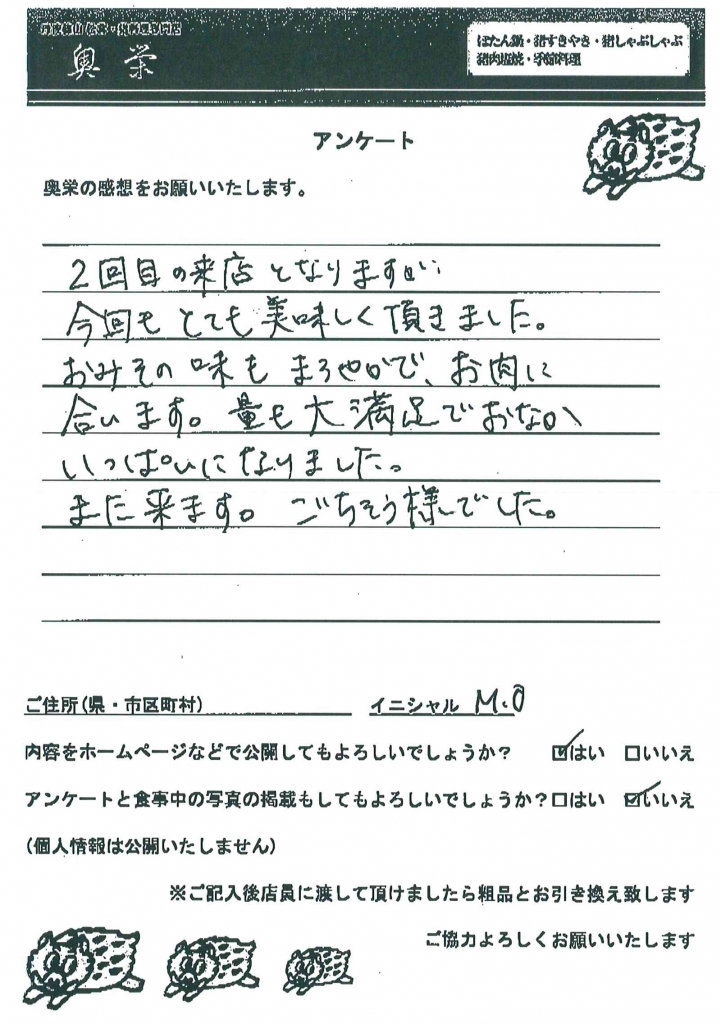 丹波篠山 松茸・猪料理専門店
奥栄
ぼたん鍋・猪すきやき・猪しゃぶしゃぶ
猪肉塩焼・季節料理
アンケート
奥栄の感想をお願いいたします。
2回目の来店となりますが…
今回も とても美味しく頂きました。
おみその味も まろやかで、お肉に
合います。量も大満足でおなか
いっぱいになりました。
また来ます。 ごちそう様でした。
ご住所(県・市区町村)
イニシャル M.O
内容をホームページなどで公開してもよろしいでしょうか? ☑はい □いいえ
アンケートと食事中の写真の掲載もしてもよろしいでしょうか?□はい ☑いいえ
(個人情報は公開いたしません)
※ご記入後店員に渡して頂けましたら粗品とお引き換え致します
ご協力よろしくお願いいたします